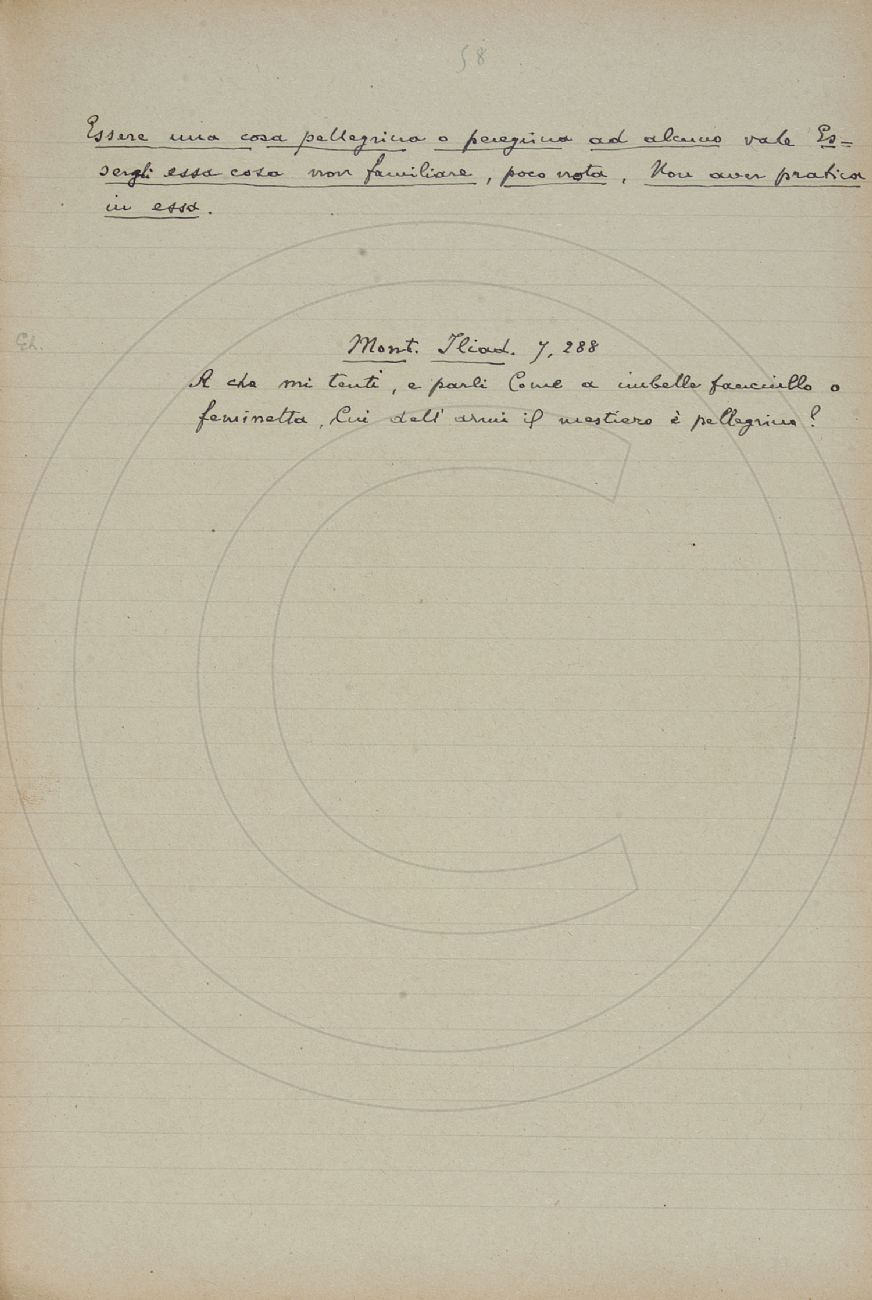 58
Essere una cosa pellegrina o peregrina ad alcuno vale Es=
sergli essa cosa non familiare, poco nota, Non aver pratica
in essa.
Gh.
Mont. Iliad. 7, 288
A che mi tenti, e parli Come a imbelle fanciullo o
feminetta, Cui dell' armi il mestiero è pellegrino?